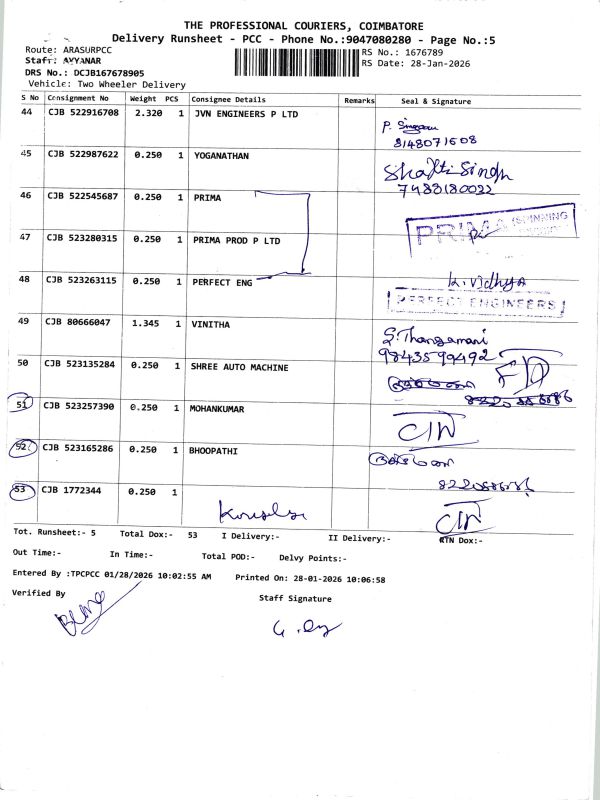 THE PROFESSIONAL COURIERS, COIMBATORE
Delivery Runsheet - PCC - Phone No.:9047080280 - Page No.:5
Route: ARASURPCC
RS No.: 1676789
Staff: AYYANAR
RS Date: 28-Jan-2026
DRS No.: DCJB167678905
Vehicle: Two Wheeler Delivery
S No Consignment No Weight PCS Consignee Details Remarks Seal & Signature
44 CJB 522916708 2.320 1 JVN ENGINEERS P LTD
8148071608
45 CJB 522987622 0.250 1 YOGANATHAN
Shakti Singh
7488180022
46 CJB 522545687 0.250 1 PRIMA
PRIMA SPINNING
47 CJB 523280315 0.250 1 PRIMA PROD P LTD
48 CJB 523263115 0.250 1 PERFECT ENG
K. Vidhya
PERFECT ENGINEERS
49 CJB 80666047 1.345 1 VINITHA
S. Thangamani
9843599492
50 CJB 523135284 0.250 1 SHREE AUTO MACHINE
51 CJB 523257390 0.250 1 MOHANKUMAR
52 CJB 523165286 0.250 1 BHOOPATHI
53 CJB 1772344 0.250 1
Tot. Runsheet:- 5 Total Dox:- 53 I Delivery:- II Delivery:- RTN Dox:-
Out Time:- In Time:- Total POD:- Delvy Points:-
Entered By :TPCPCC 01/28/2026 10:02:55 AM Printed On: 28-01-2026 10:06:58
Verified By
Staff Signature